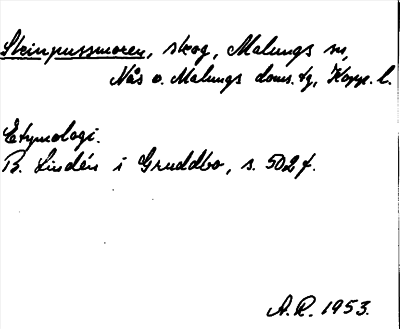 Steinpussmoren, skog, Malungs sn,
Nås o. Malungs doms. tg, Kopp. l.
Etymologi.
B. Lindén i Gruddbo, s. 502 f.
A.R. 1953.